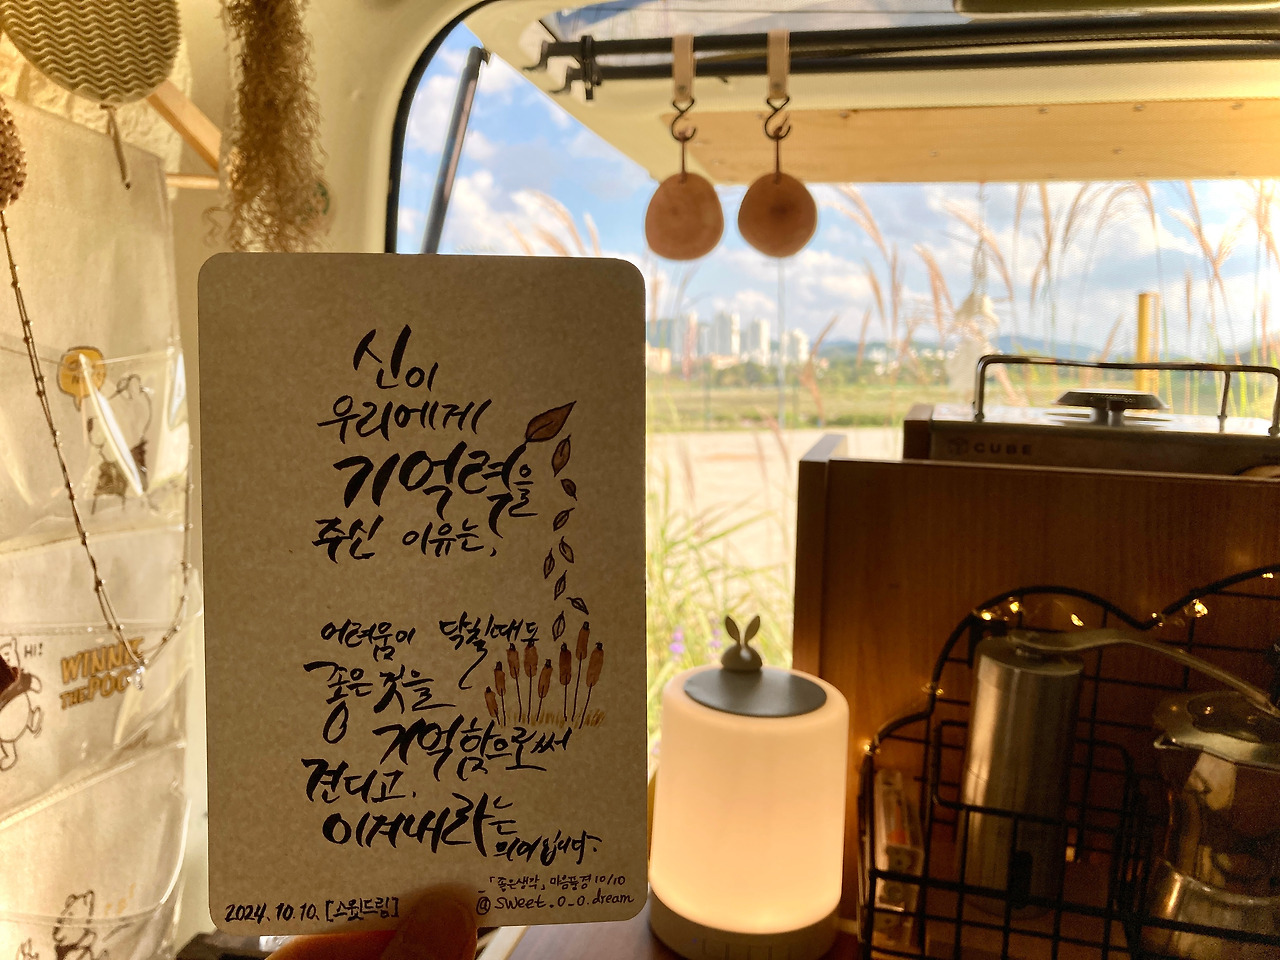 신이
우리에게
기억력을
주신 이유는,
어려움이 닥칠때도
좋은 것을
기억함으로써
견디고,
이겨내라는
의미입니다.
「좋은생각」 마음풍경 10/10
2024. 10. 10. [스윗드림]
@ sweet.o_o.dream
CUBE
HI!
WINNIE
THE POO